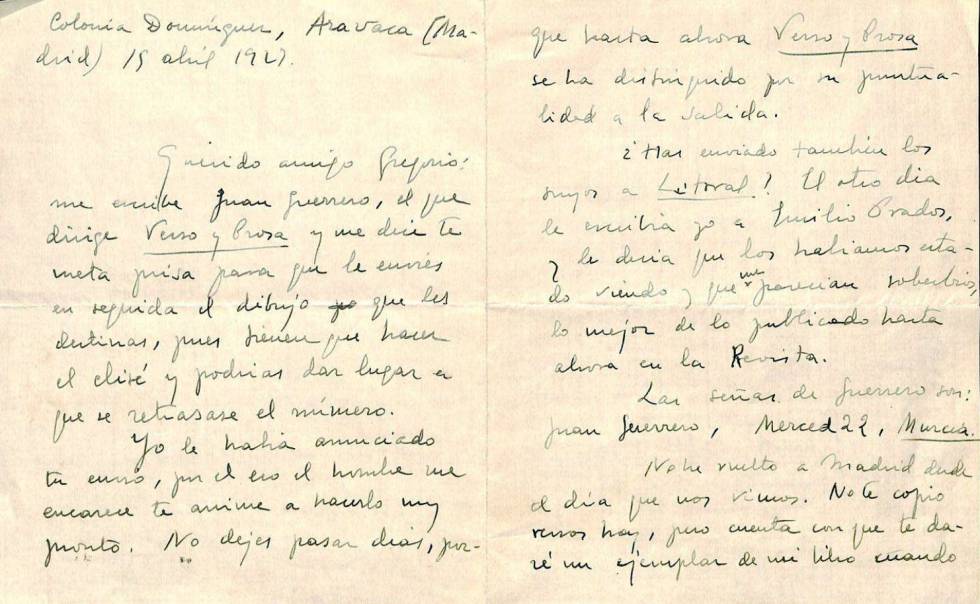 Colonia Domínguez, Aravaca (Ma-
drid) 15 abril 1927.
Querido amigo Gregorio:
me escribe Juan Guerrero, el que
dirige Verso y Prosa y me dice te
meta prisa para que le envíes
en seguida el dibujo que les
destinas, pues tienen que hacer
el clisé y podrías dar lugar a
que se retrasase el número.
Yo le había anunciado
tu envío, por el eso el hombre me
encarece te anime a hacerlo muy
pronto. No dejes pasar días, por-
que hasta ahora Verso y Prosa
se ha distinguido por su puntua-
lidad a la salida.
¿Has enviado también los
suyos a Litoral? El otro día
le escribía yo a Emilio Prados,
y le decía que los habíamos esta-
do viendo y que me parecían soberbios,
lo mejor de lo publicado hasta
ahora en la Revista.
Las señas de Guerrero son:
Juan Guerrero, Merced 22, Murcia.
No he vuelto a Madrid desde
el día que nos vimos. No te copio
versos hoy, pero cuenta con que te da-
ré un ejemplar de mi libro cuando